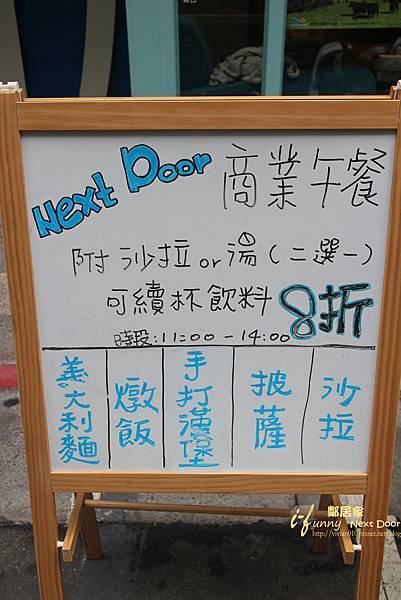 Next Door 商業午餐
附沙拉or湯(二選一)
可續杯飲料 8折
時段:11:00-14:00
義大利麵
燉飯
手打漢堡
披薩
沙拉
鄰居家
i-Funny Next Door